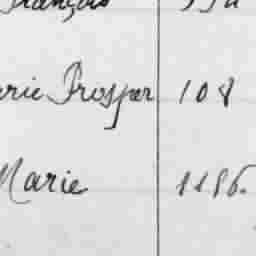 François
arie Prosper 108
Marie 1186.